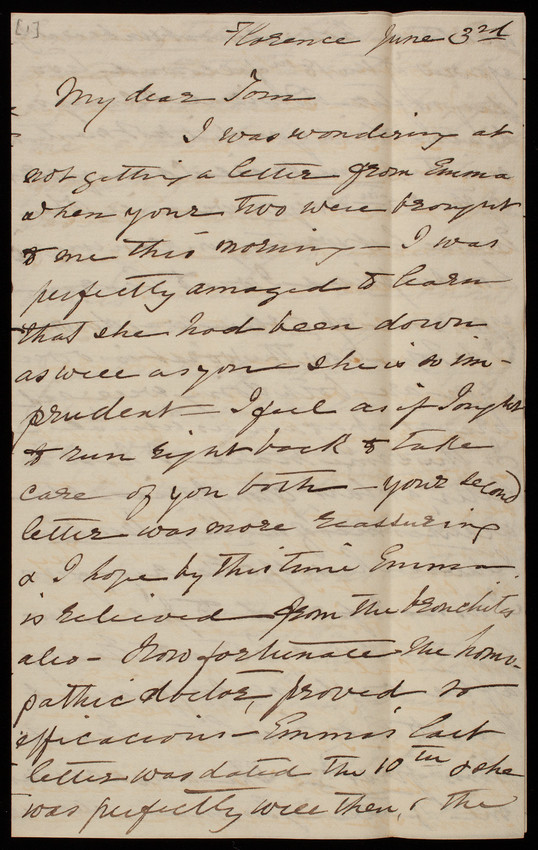 [1]
Florence June 3rd
My dear Tom
I was wondering at
not getting a letter from Emma
when your two were brought
to me this morning — I was
perfectly amazed to learn
that she had been down
as well as you — she is so im-
prudent — I feel as if I ought
to run right back to take
care of you both — your second
letter was more reassuring
& I hope by this time Emma
is relieved from the bronchitis
also — How fortunate the homo-
pathic doctor, proved so
efficacious — Emma's last
letter was dated the 10th & she
was perfectly well then, & the